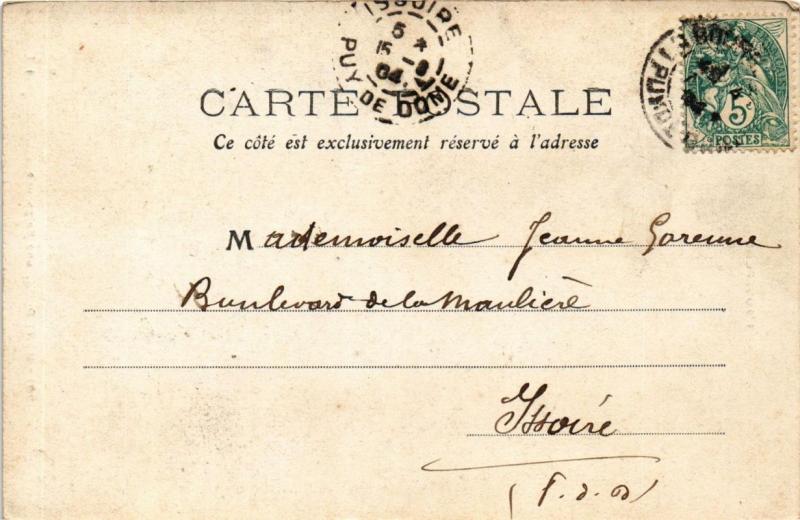 ISSOIRE
5 *
5 -9
04
PUY DE DOME
5
POSTES
CARTE POSTALE
Ce côté est exclusivement réservé à l'adresse
Mademoiselle Jeanne Garenne
Boulevard de la Manlière
Issoire
(P. d. D)